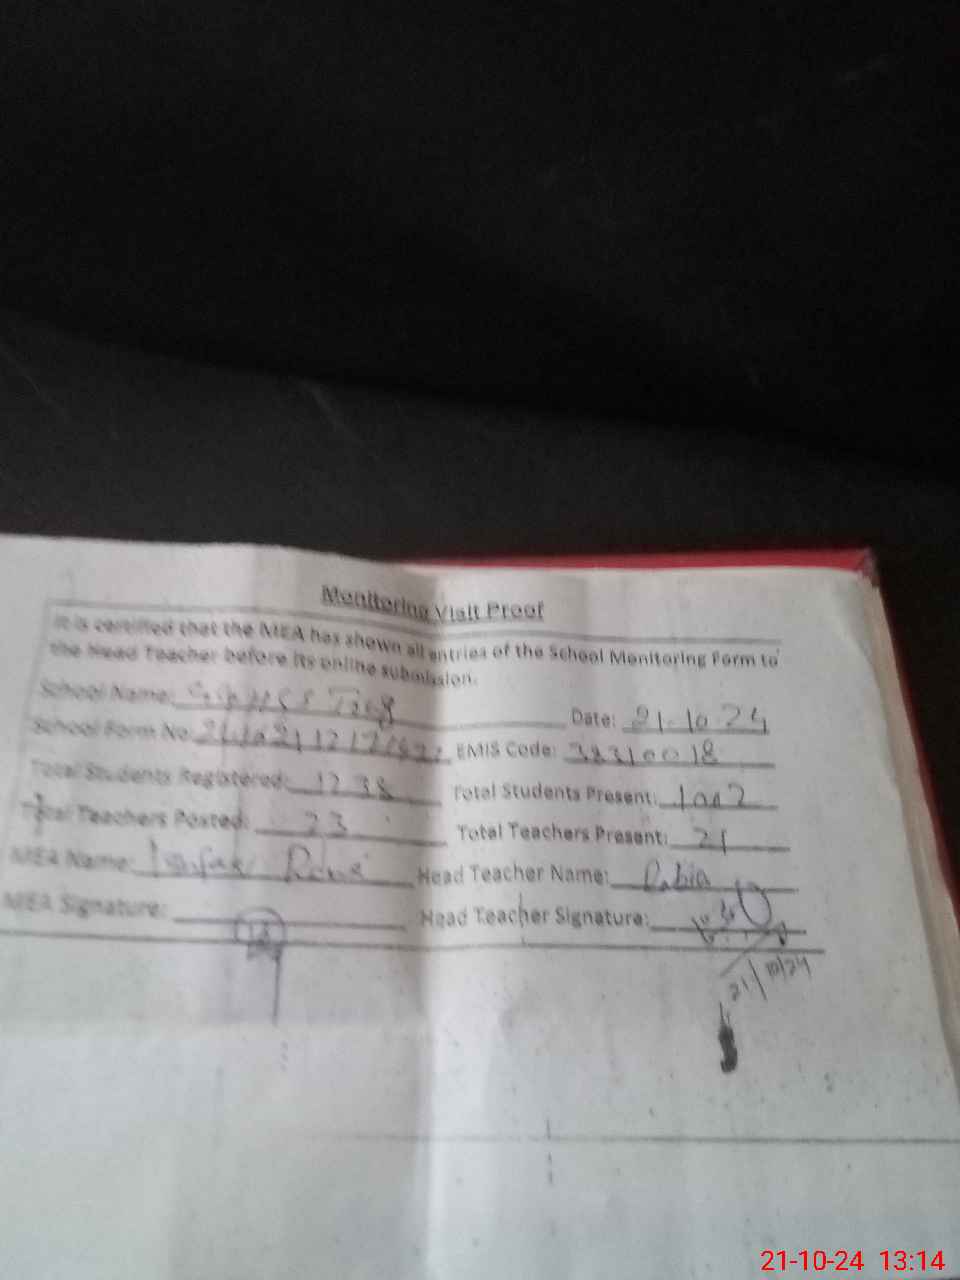 Monitoring Visit Proof
It is certified that the MEA has shown all entries of the School Monitoring Form to
the Head Teacher before its online submission.
School Name: Date: 21.10.24
School Form No. EMIS Code: 38310018
Total Students Registered: 1238 Total Students Present: 1002
Total Teachers Posted: 23 Total Teachers Present: 21
MEA Name: Head Teacher Name: Rabia
MEA Signature: Head Teacher Signature:
21/10/24
21-10-24 13:14